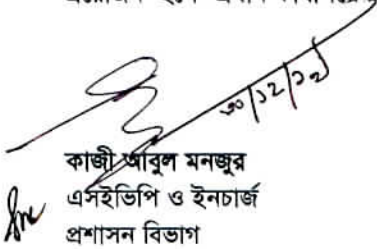 ৩০/১২/১২
কাজী আবুল মনজুর
এসইভিপি ও ইনচার্জ
প্রশাসন বিভাগ